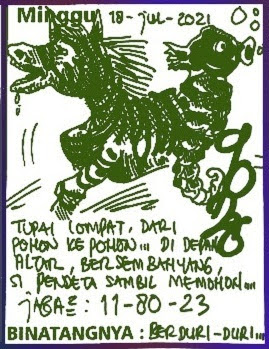 Minggu 18-JUL-2021
TUPAI LOMPAT, DARI
POHON KE POHON... DI DEPAN
ALTAR, BERSEMBAHYANG,
SI PENDETA SAMBIL MEMOHON...
JABAR: 11-80-23
BINATANGNYA : BERDURI-DURI...